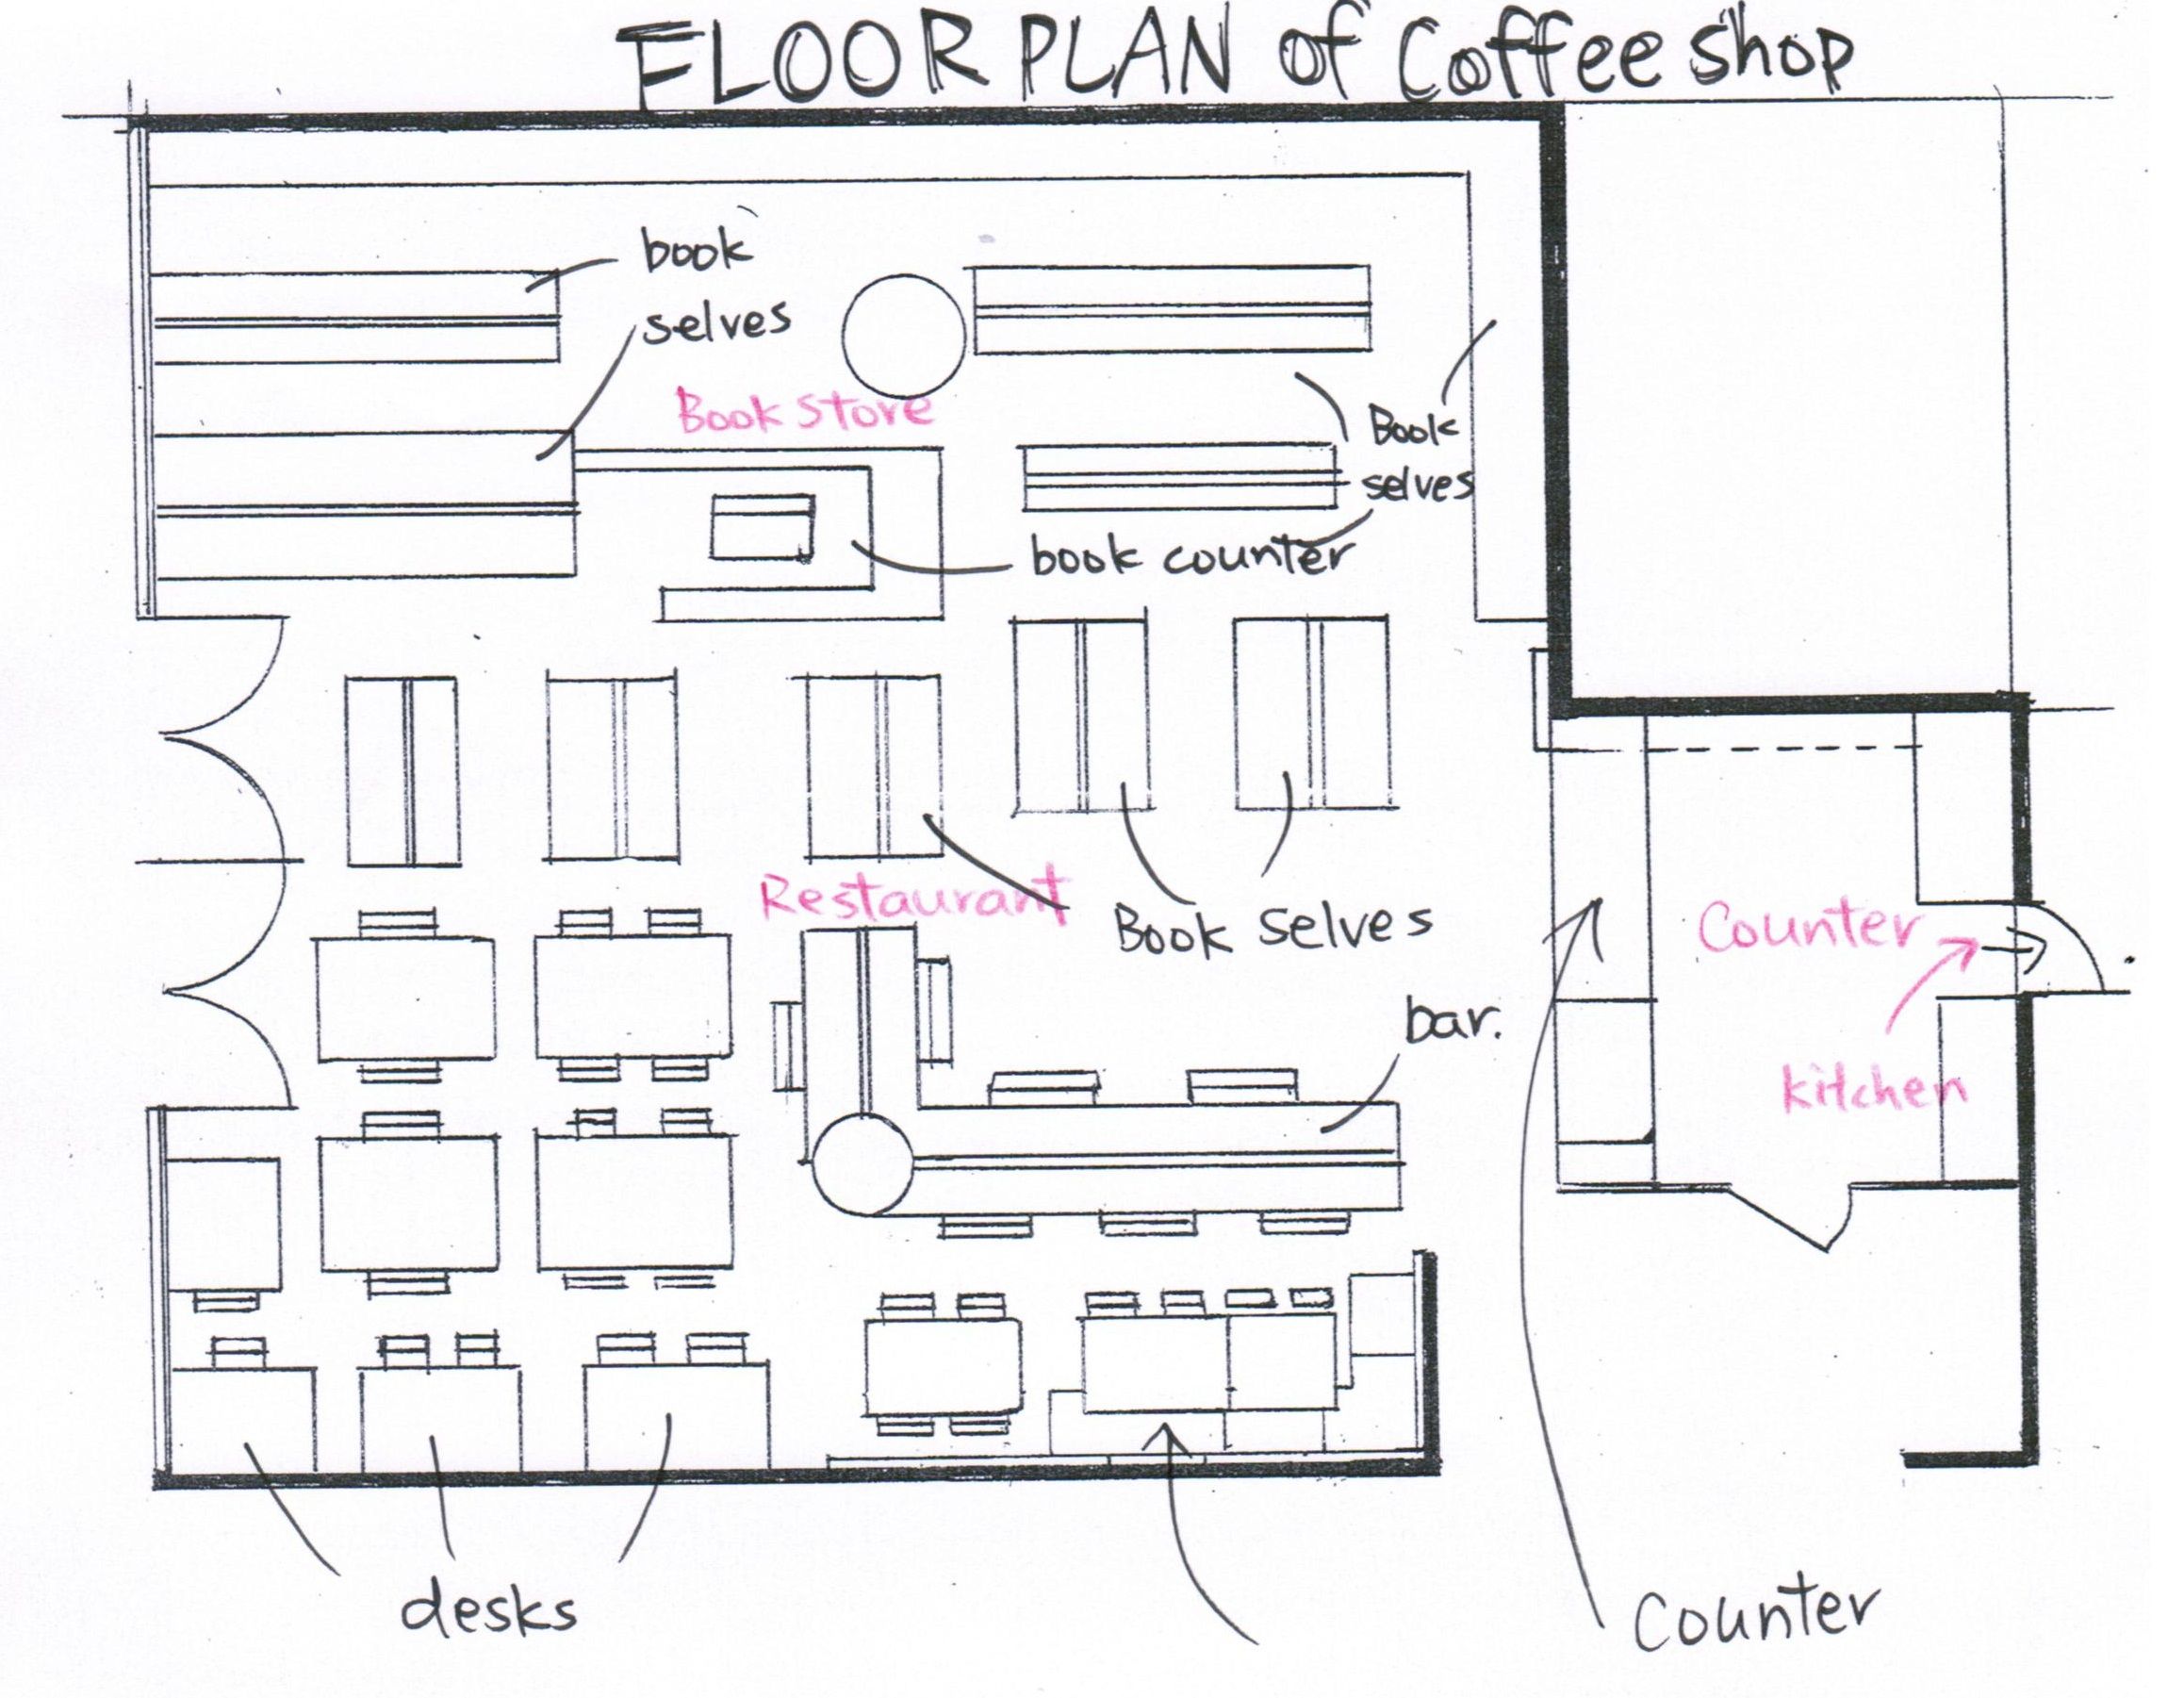 FLOOR PLAN of Coffee shop
book
selves
Book Store
Book
selves
book counter
Restaurant
Book selves
Counter
bar.
kitchen
desks
Counter